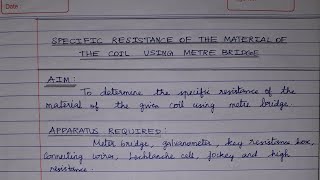 Date
SPECIFIC RESISTANCE OF THE MATERIAL OF
THE COIL USING METRE BRIDGE
AIM:
To determine the specific resistance of the
material of the given coil using metre bridge.
APPARATUS REQUIRED:
Meter bridge, galvanometer, key resistance box,
Connecting wires, Lechlanche cell, jockey and high
resistance.